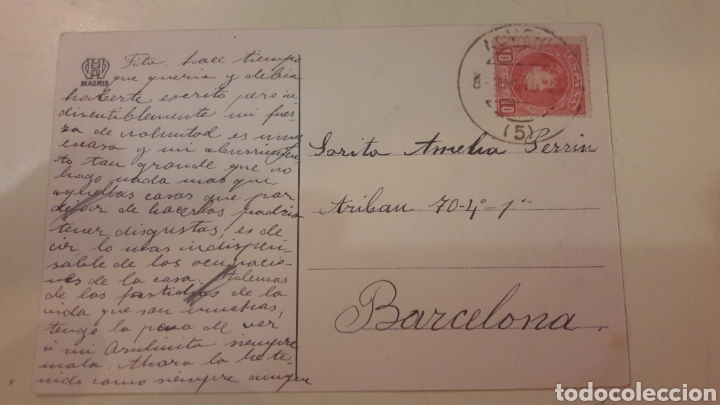 MADRID
Tita, hace tiempo
que queria y debia
haberte escrito pero in
discutiblemente mi fuer
za de voluntad es muy
escasa y mi aburrimien
to tan grande que no
hago nada mas que
aquellas cosas que por
dejar de hacerlas podria
tener disgustos, es de
cir lo mas indispen
sable de las ocupacio
nes de la casa. Ademas
de los fastidios de la
vida que son muchos,
tengo la pena de ver
á mi siempre
mala. Ahora la he te
nido como siempre
10 10
ESPAÑA
(5)
Sarita Amelia Perrin
Aribau 70-4º-1ª
Barcelona
todocoleccion.net